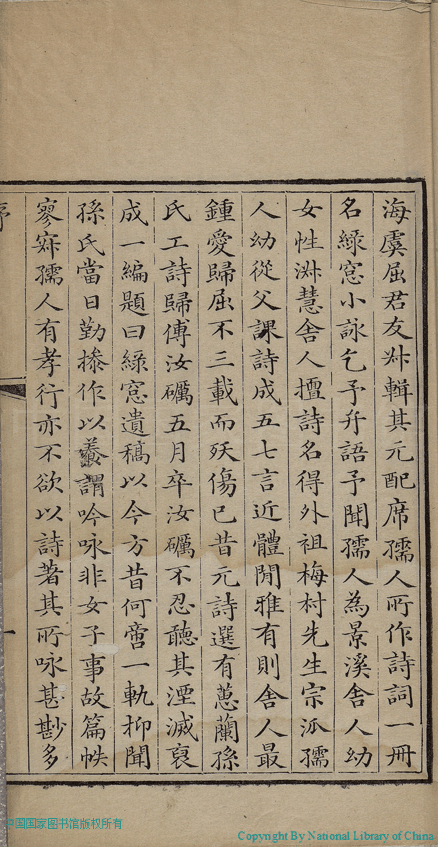 海虞屈君友𠦑輯其元配席孺人所作詩詞一冊
名綠窓小詠乞予弁語予聞孺人為景溪舍人幼
女性淋慧舍人擅詩名得外祖梅村先生宗派孺
人幼從父課詩成五七言近體閒雅有則舍人最
鍾愛歸屈不三載而殀傷已昔元詩選有蕙蘭孫
氏工詩歸傅汝礪五月卒汝礪不忍聽其湮滅裒
成一編題曰綠窓遺稿以今方昔何啻一軌抑聞
孫氏當日勤摻作以養謂吟咏非女子事故篇帙
寥寂孺人有孝行亦不欲以詩著其所咏甚尠多
序
一
中国国家图书馆版权所有
Copyright By National Library of China